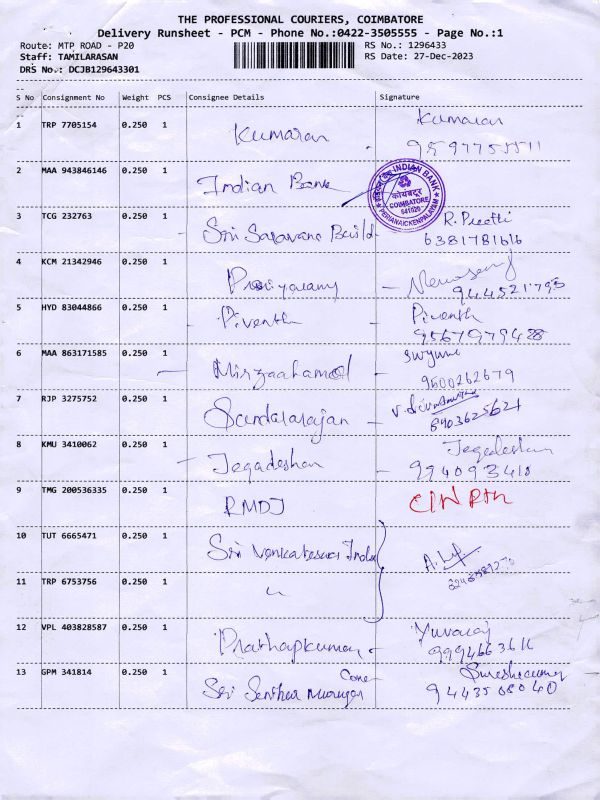 THE PROFESSIONAL COURIERS, COIMBATORE
Delivery Runsheet - PCM - Phone No.:0422-3505555 - Page No.:1
Route: MTP ROAD - P20
RS No.: 1296433
Staff: TAMILARASAN
RS Date: 27-Dec-2023
DRS No.: DCJB129643301
S No Consignment No Weight PCS Consignee Details Signature
1 TRP 7705154 0.250 1 Kumaran Kumaran
2 MAA 943846146 0.250 1 Indian Bank
INDIAN BANK
कोयंबटूर
COIMBATORE
641020
PERIANAICKENPALAYAM
3 TCG 232763 0.250 1 Sri Saravana Build R. Preethi
6381781616
4 KCM 21342946 0.250 1
944521795
5 HYD 83044866 0.250 1 Piventh Piventh
9567979428
6 MAA 863171585 0.250 1 Mirzaahamed
9500262679
7 RJP 3275752 0.250 1 Sundararajan
8903625621
8 KMU 3410062 0.250 1 Jegadeshan Jegadeshan
994093410
9 TMG 200536335 0.250 1 RMDJ
10 TUT 6665471 0.250 1 Sri Venkateswa Indu
11 TRP 6753756 0.250 1 "
12 VPL 403828587 0.250 1 Prathapkumar Yuvaraj
9994663616
13 GPM 341814 0.250 1 Sri Senthur Murugan Cone Sureshkumar
9443508040